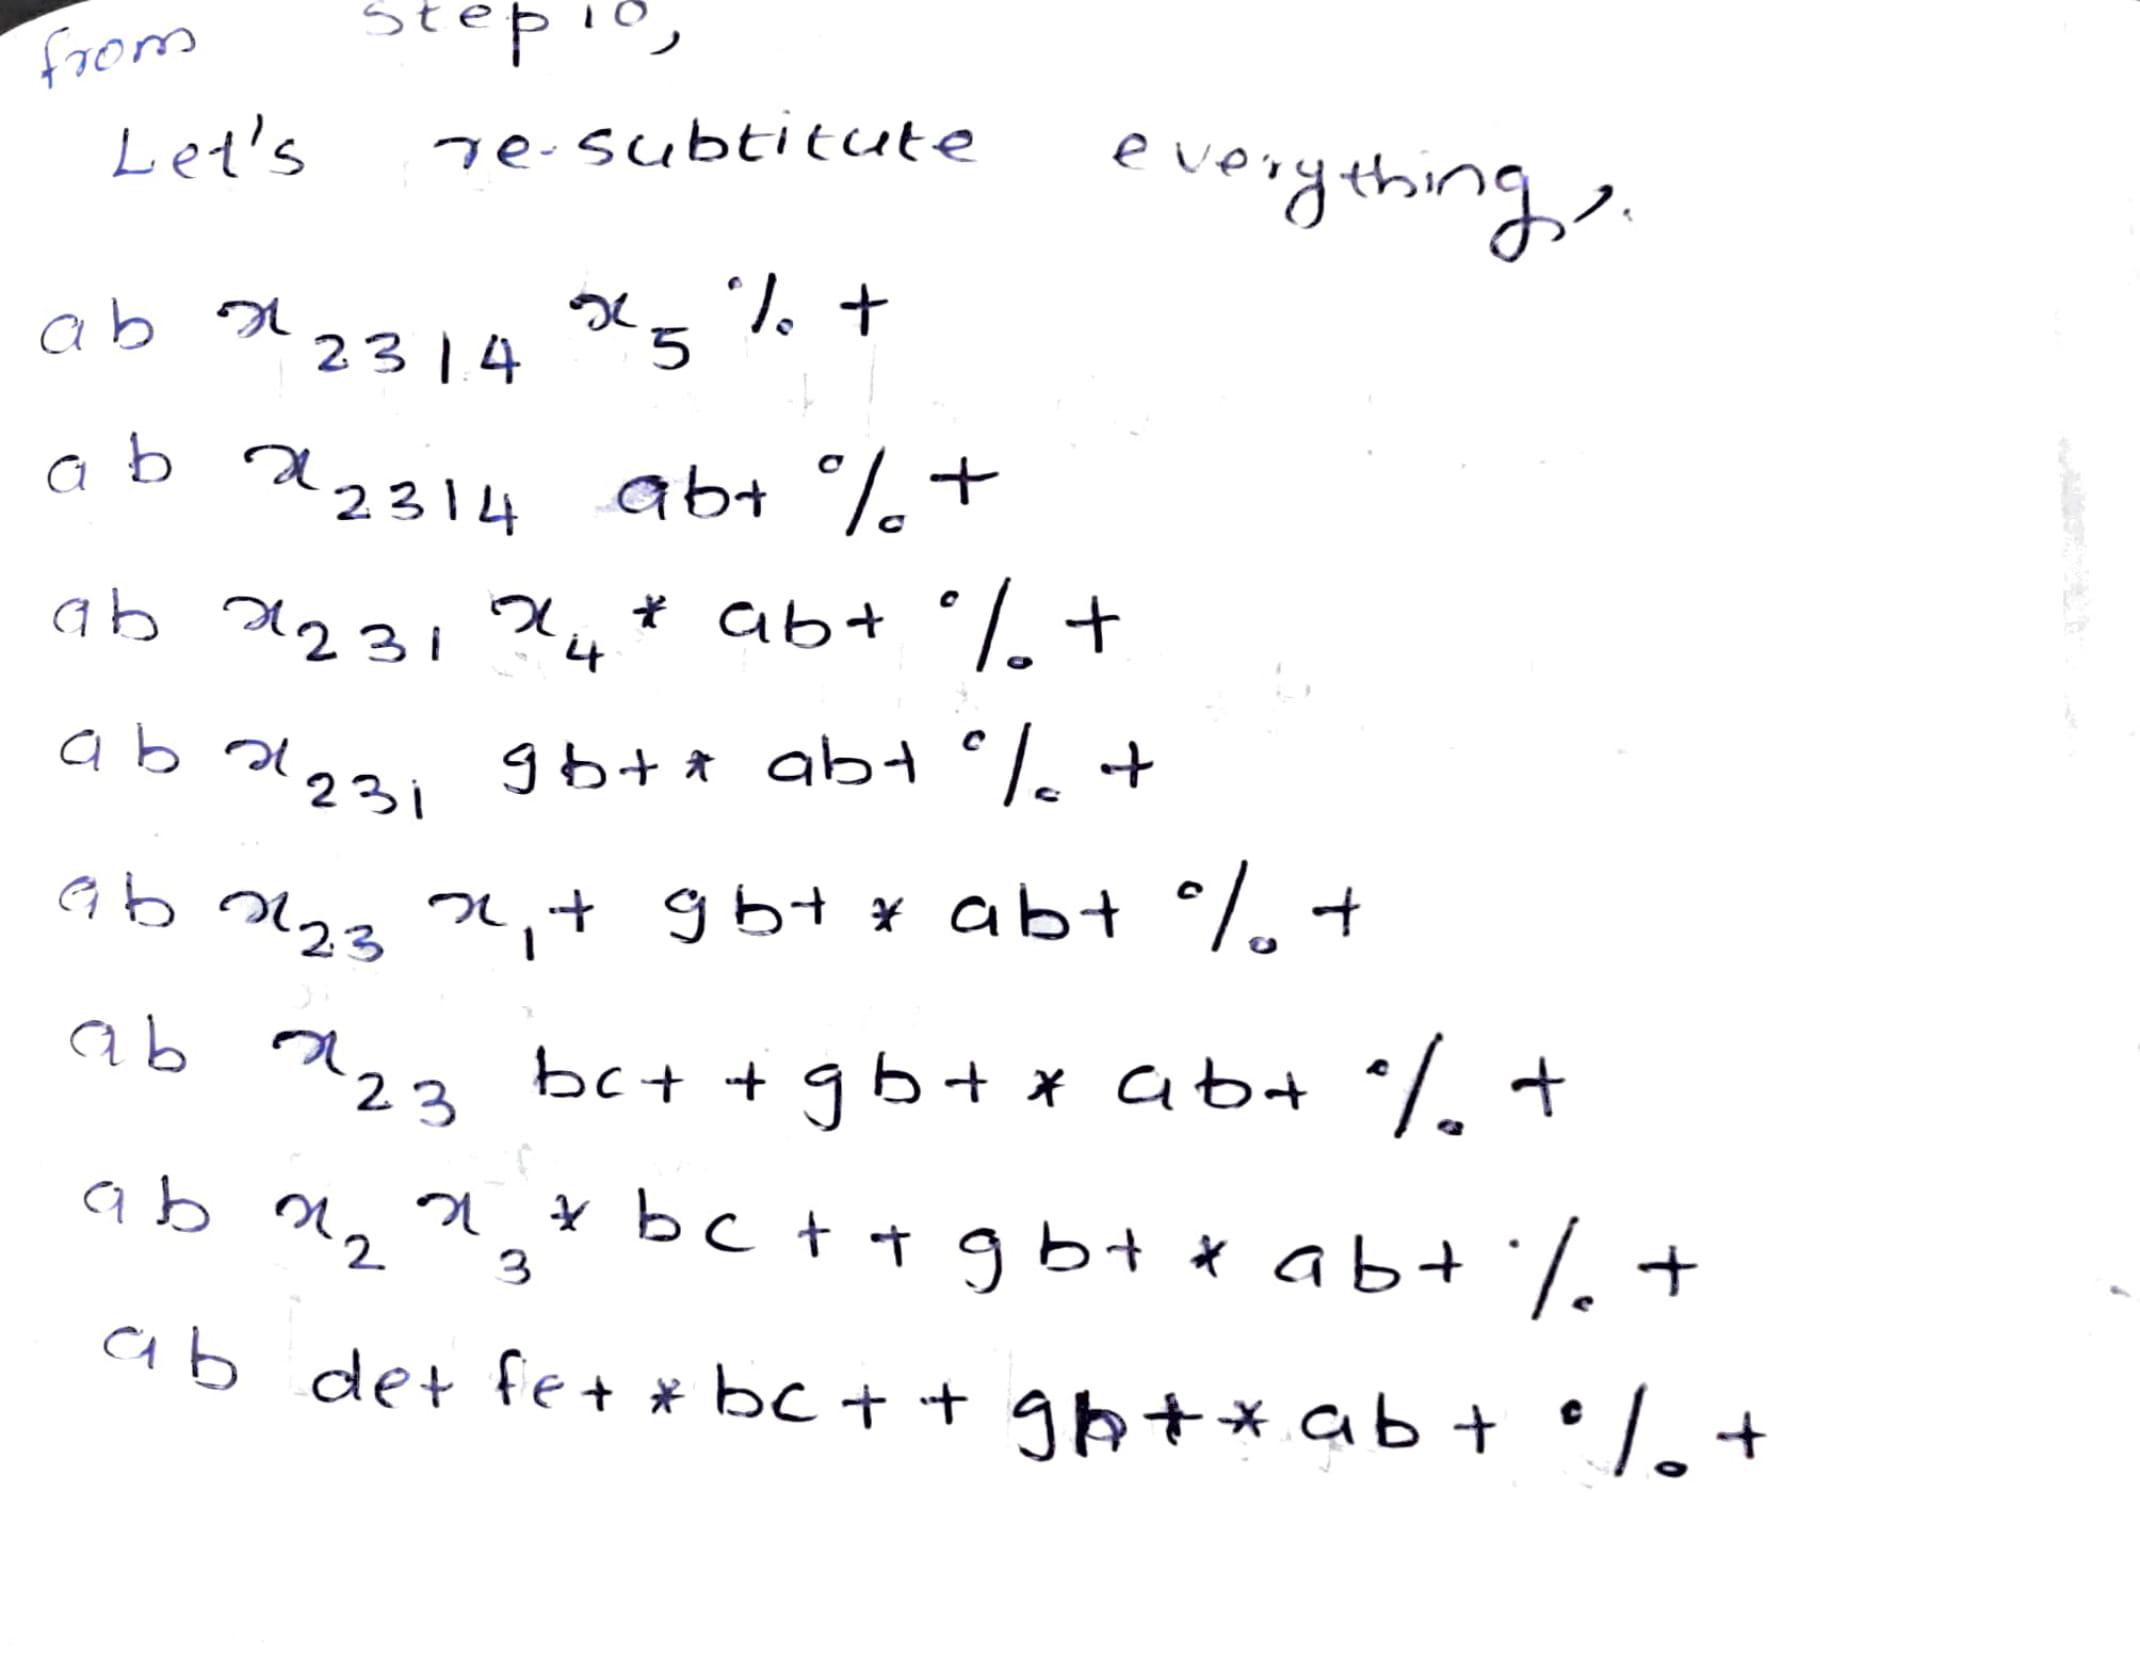 from step 10,
Let's re-subtitute everything,.
ab x₂₃₁₄ x₅ % +
ab x₂₃₁₄ ab+ % +
ab x₂₃₁ x₄ * ab+ % +
ab x₂₃₁ gb+* ab+ % +
ab x₂₃ x₁+ gb+ * ab+ % +
ab x₂₃ bc+ + gb+ * ab+ % +
ab x₂ x₃ * bc + + gb+ * ab+ % +
ab de+ fe+ * bc + + gb+* ab + % +